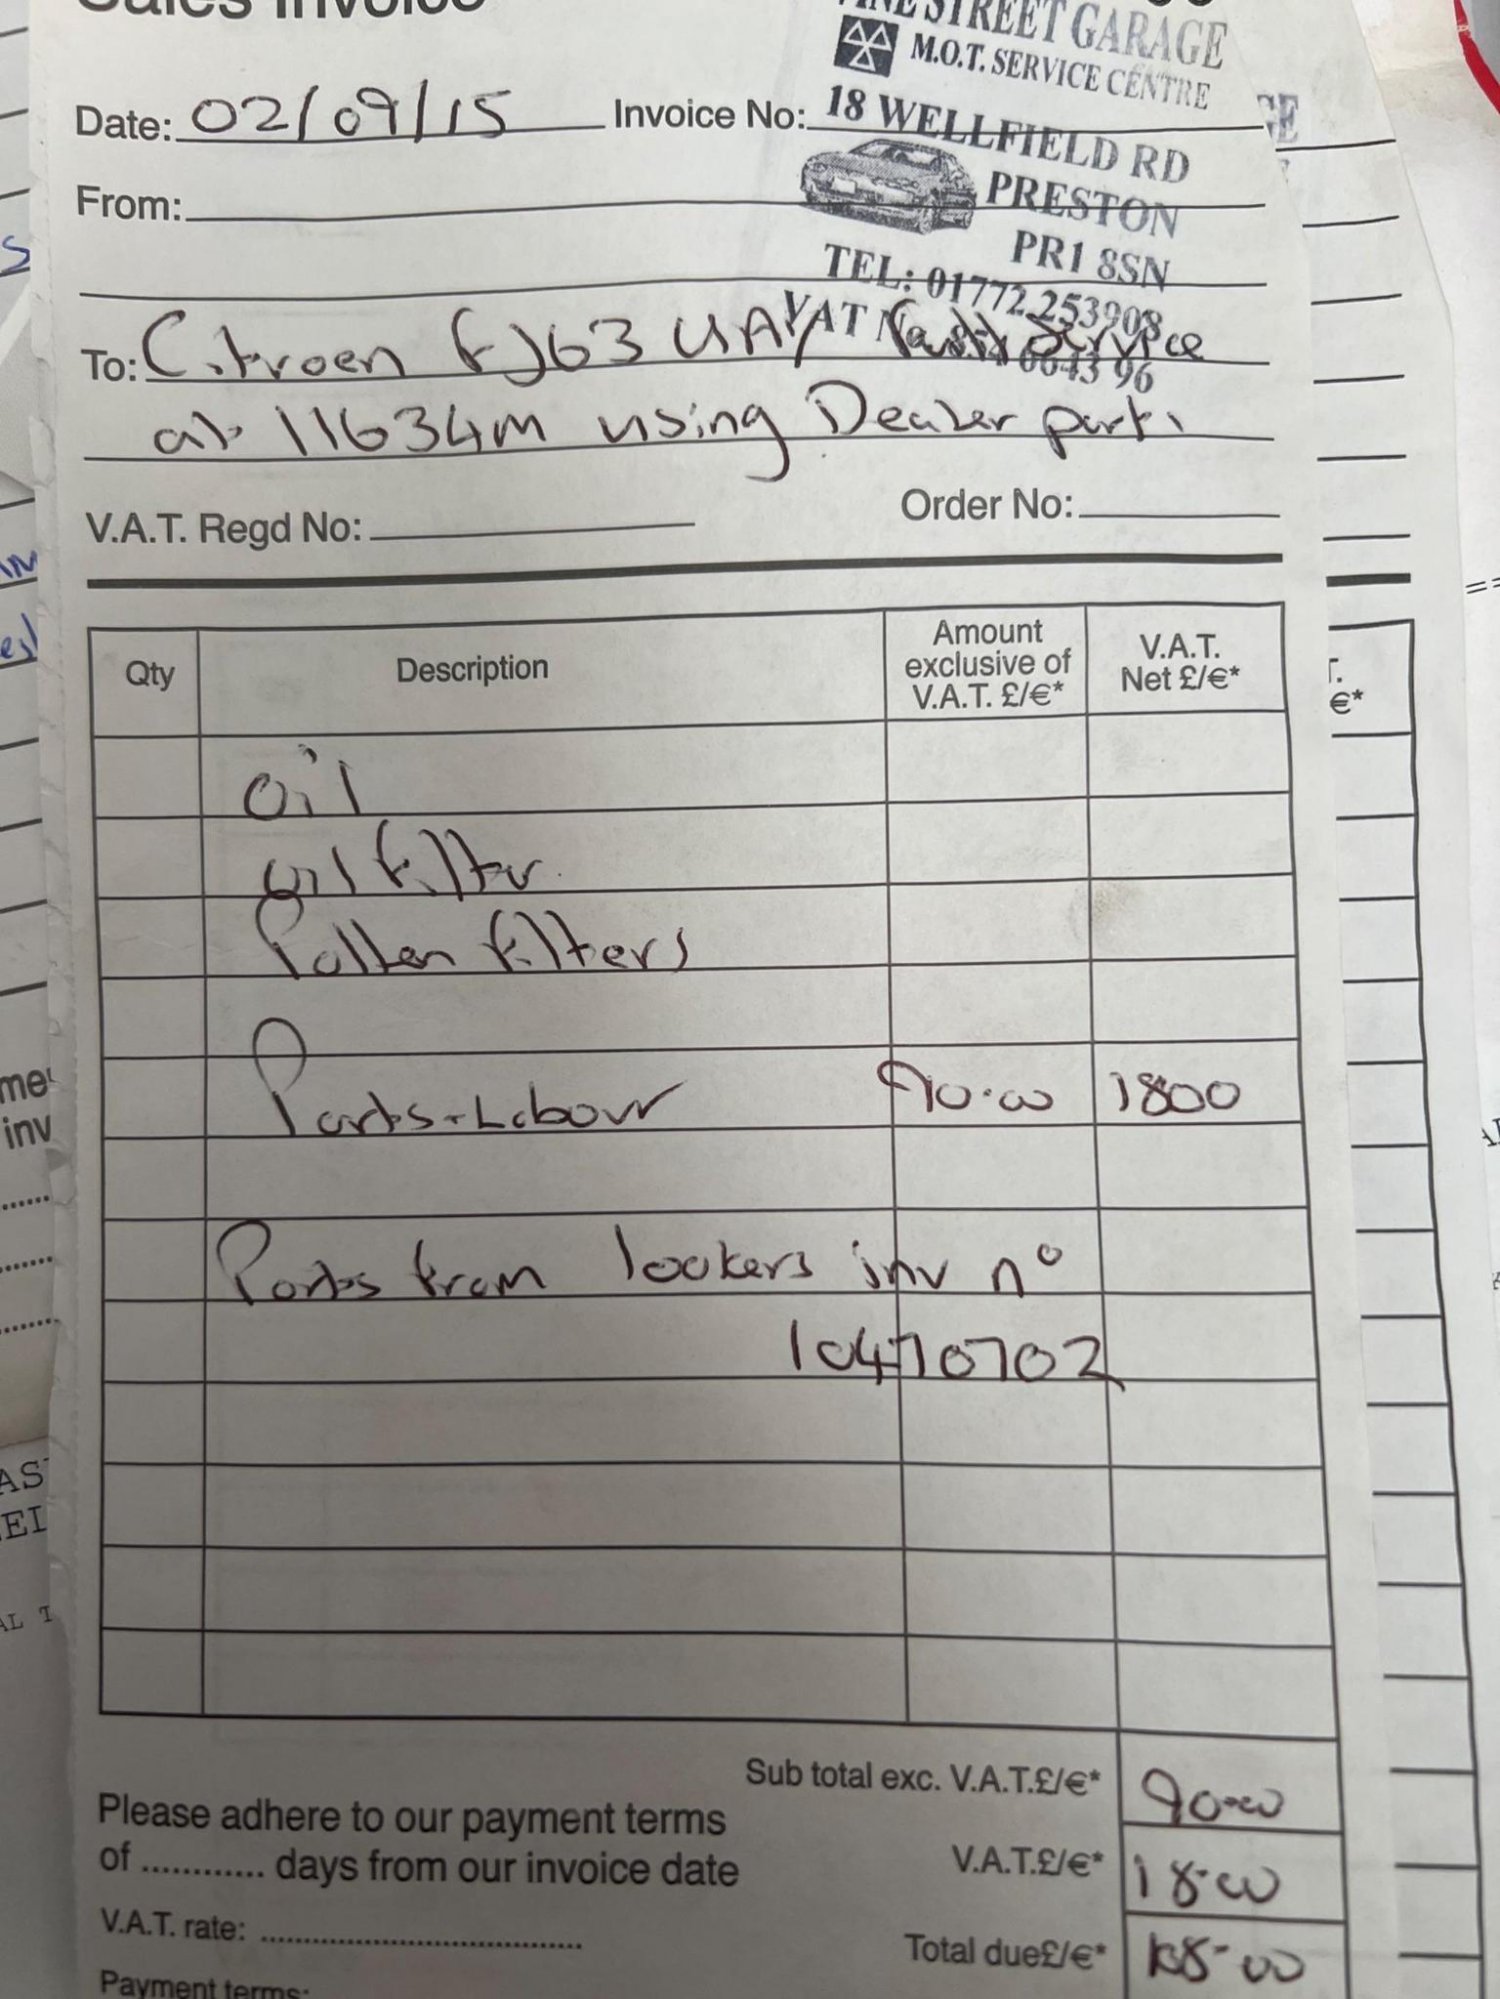 Sales Invoice
STREET GARAGE
M.O.T. SERVICE CENTRE
Date: 02/09/15 Invoice No: 18 WELLFIELD RD
PRESTON
From:
PR1 8SN
TEL: 01772 253908
VAT No. 96
To: Citroen FJ63 UAY Full Service
at 11634m using Dealer parts
V.A.T. Regd No: Order No:
Qty Description Amount exclusive of V.A.T. £/€* V.A.T. Net £/€*
Oil
Oil filter
Pollen filters
Parts + Labour 90.00 1800
Parts from lookers inv nº
10470702
Sub total exc. V.A.T.£/€* 90-00
Please adhere to our payment terms
of ............ days from our invoice date
V.A.T.£/€* 18-00
V.A.T. rate: ....................................
Total due£/€* 108-00
Payment terms: